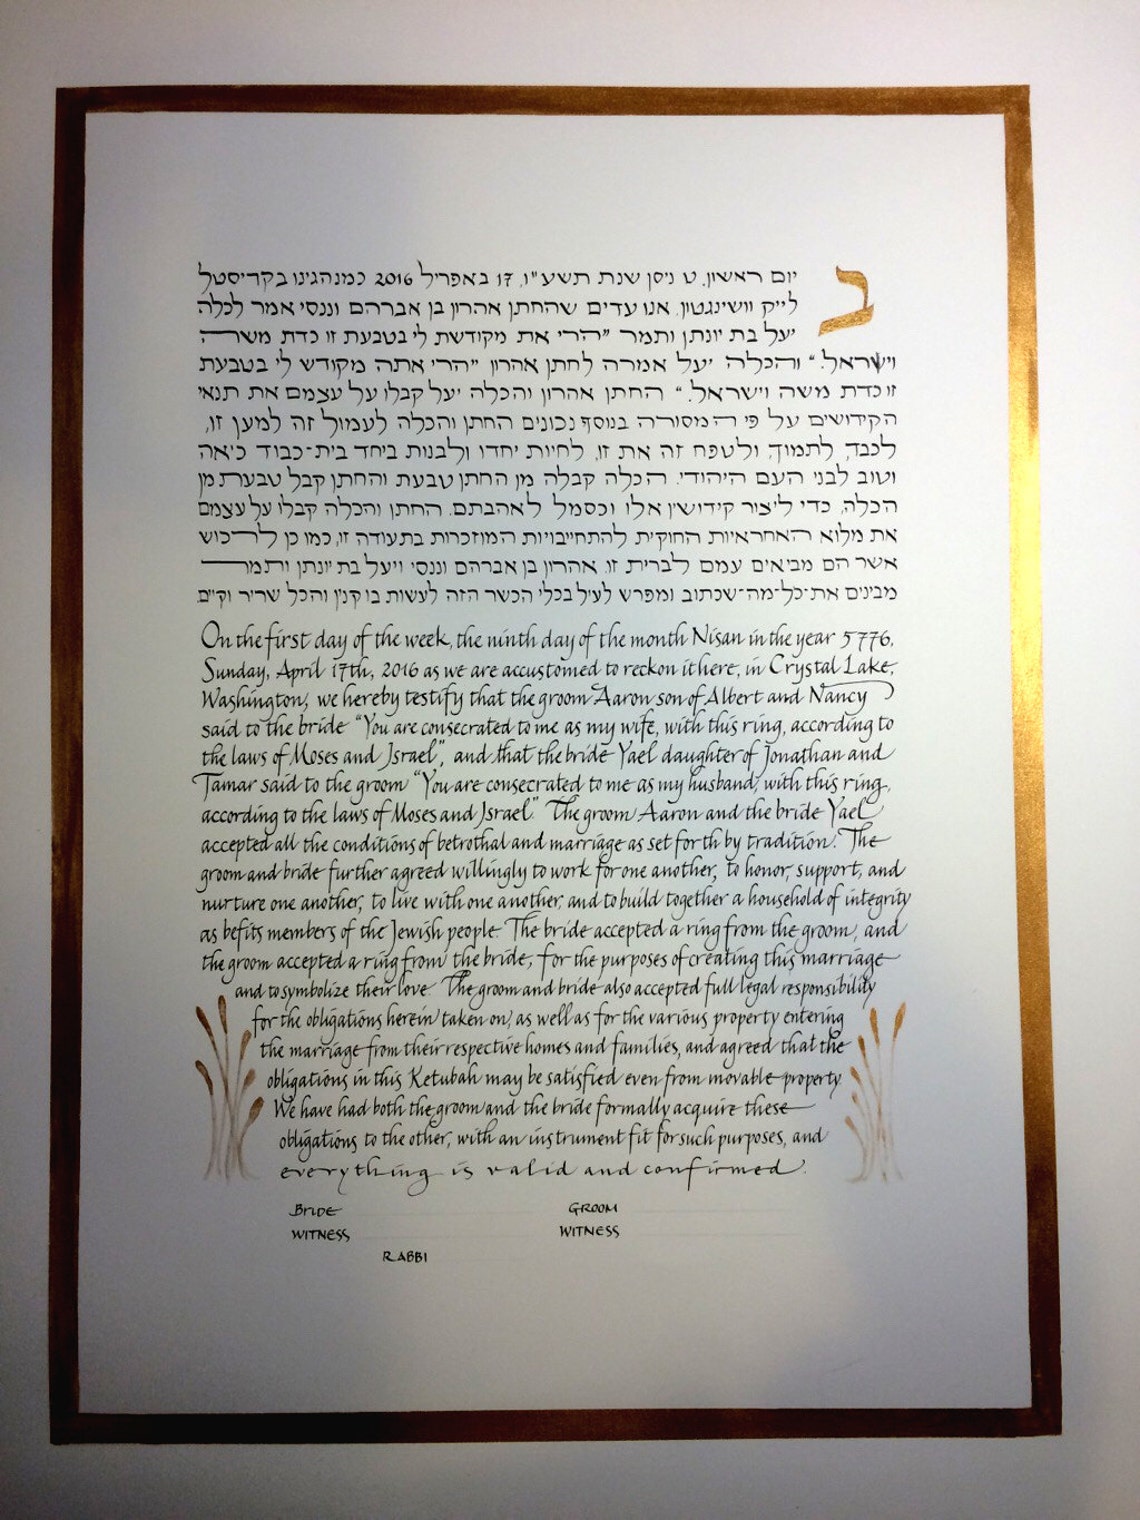 ב יום ראשון, ט ניסן שנת תשע"ו, 17 באפריל 2016 כמנהגינו בקריסטל
לייק וושינגטון. אנו עדים שהחתן אהרון בן אברהם וננסי אמר לכלה
יעל בת יונתן ותמר "הרי את מקודשת לי בטבעת זו כדת משה
וישראל." והכלה יעל אמרה לחתן אהרון "הרי אתה מקודש לי בטבעת
זו כדת משה וישראל." החתן אהרון והכלה יעל קבלו על עצמם את תנאי
הקידושים על פי המסורה בנוסף נכונים החתן והכלה לעמול זה למען זו,
לכבד, לתמוך, ולטפח זה את זו, לחיות יחדו ולבנות ביחד בית-כבוד כיאה
וטוב לבני העם היהודי. הכלה קבלה מן החתן טבעת והחתן קבל טבעת מן
הכלה, כדי ליצור קידושין אלו וכסמל לאהבתם. החתן והכלה קבלו על עצמם
את מלוא האחראיות החוקית להתחייבויות המוזכרות בתעודה זו, כמו כן לרכוש
אשר הם מביאים עמם לברית זו. אהרון בן אברהם וננסי ויעל בת יונתן ותמר
מבינים את-כל-מה-שכתוב ומפרש לעיל בכלי הכשר הזה לעשות בו קנין והכל שריר וקיים.
On the first day of the week, the ninth day of the month Nisan in the year 5776,
Sunday, April 17th, 2016 as we are accustomed to reckon it here, in Crystal Lake,
Washington, we hereby testify that the groom Aaron son of Albert and Nancy
said to the bride "You are consecrated to me as my wife, with this ring, according to
the laws of Moses and Israel", and that the bride Yael daughter of Jonathan and
Tamar said to the groom "You are consecrated to me as my husband, with this ring,
according to the laws of Moses and Israel." The groom Aaron and the bride Yael
accepted all the conditions of betrothal and marriage as set forth by tradition. The
groom and bride further agreed willingly to work for one another, to honor, support, and
nurture one another, to live with one another, and to build together a household of integrity
as befits members of the Jewish people. The bride accepted a ring from the groom, and
the groom accepted a ring from the bride, for the purposes of creating this marriage
and to symbolize their love. The groom and bride also accepted full legal responsibility
for the obligations herein taken on, as well as for the various property entering
the marriage from their respective homes and families, and agreed that the
obligations in this Ketubah may be satisfied even from movable property.
We have had both the groom and the bride formally acquire these
obligations to the other, with an instrument fit for such purposes, and
everything is valid and confirmed.
BRIDE GROOM
WITNESS WITNESS
RABBI